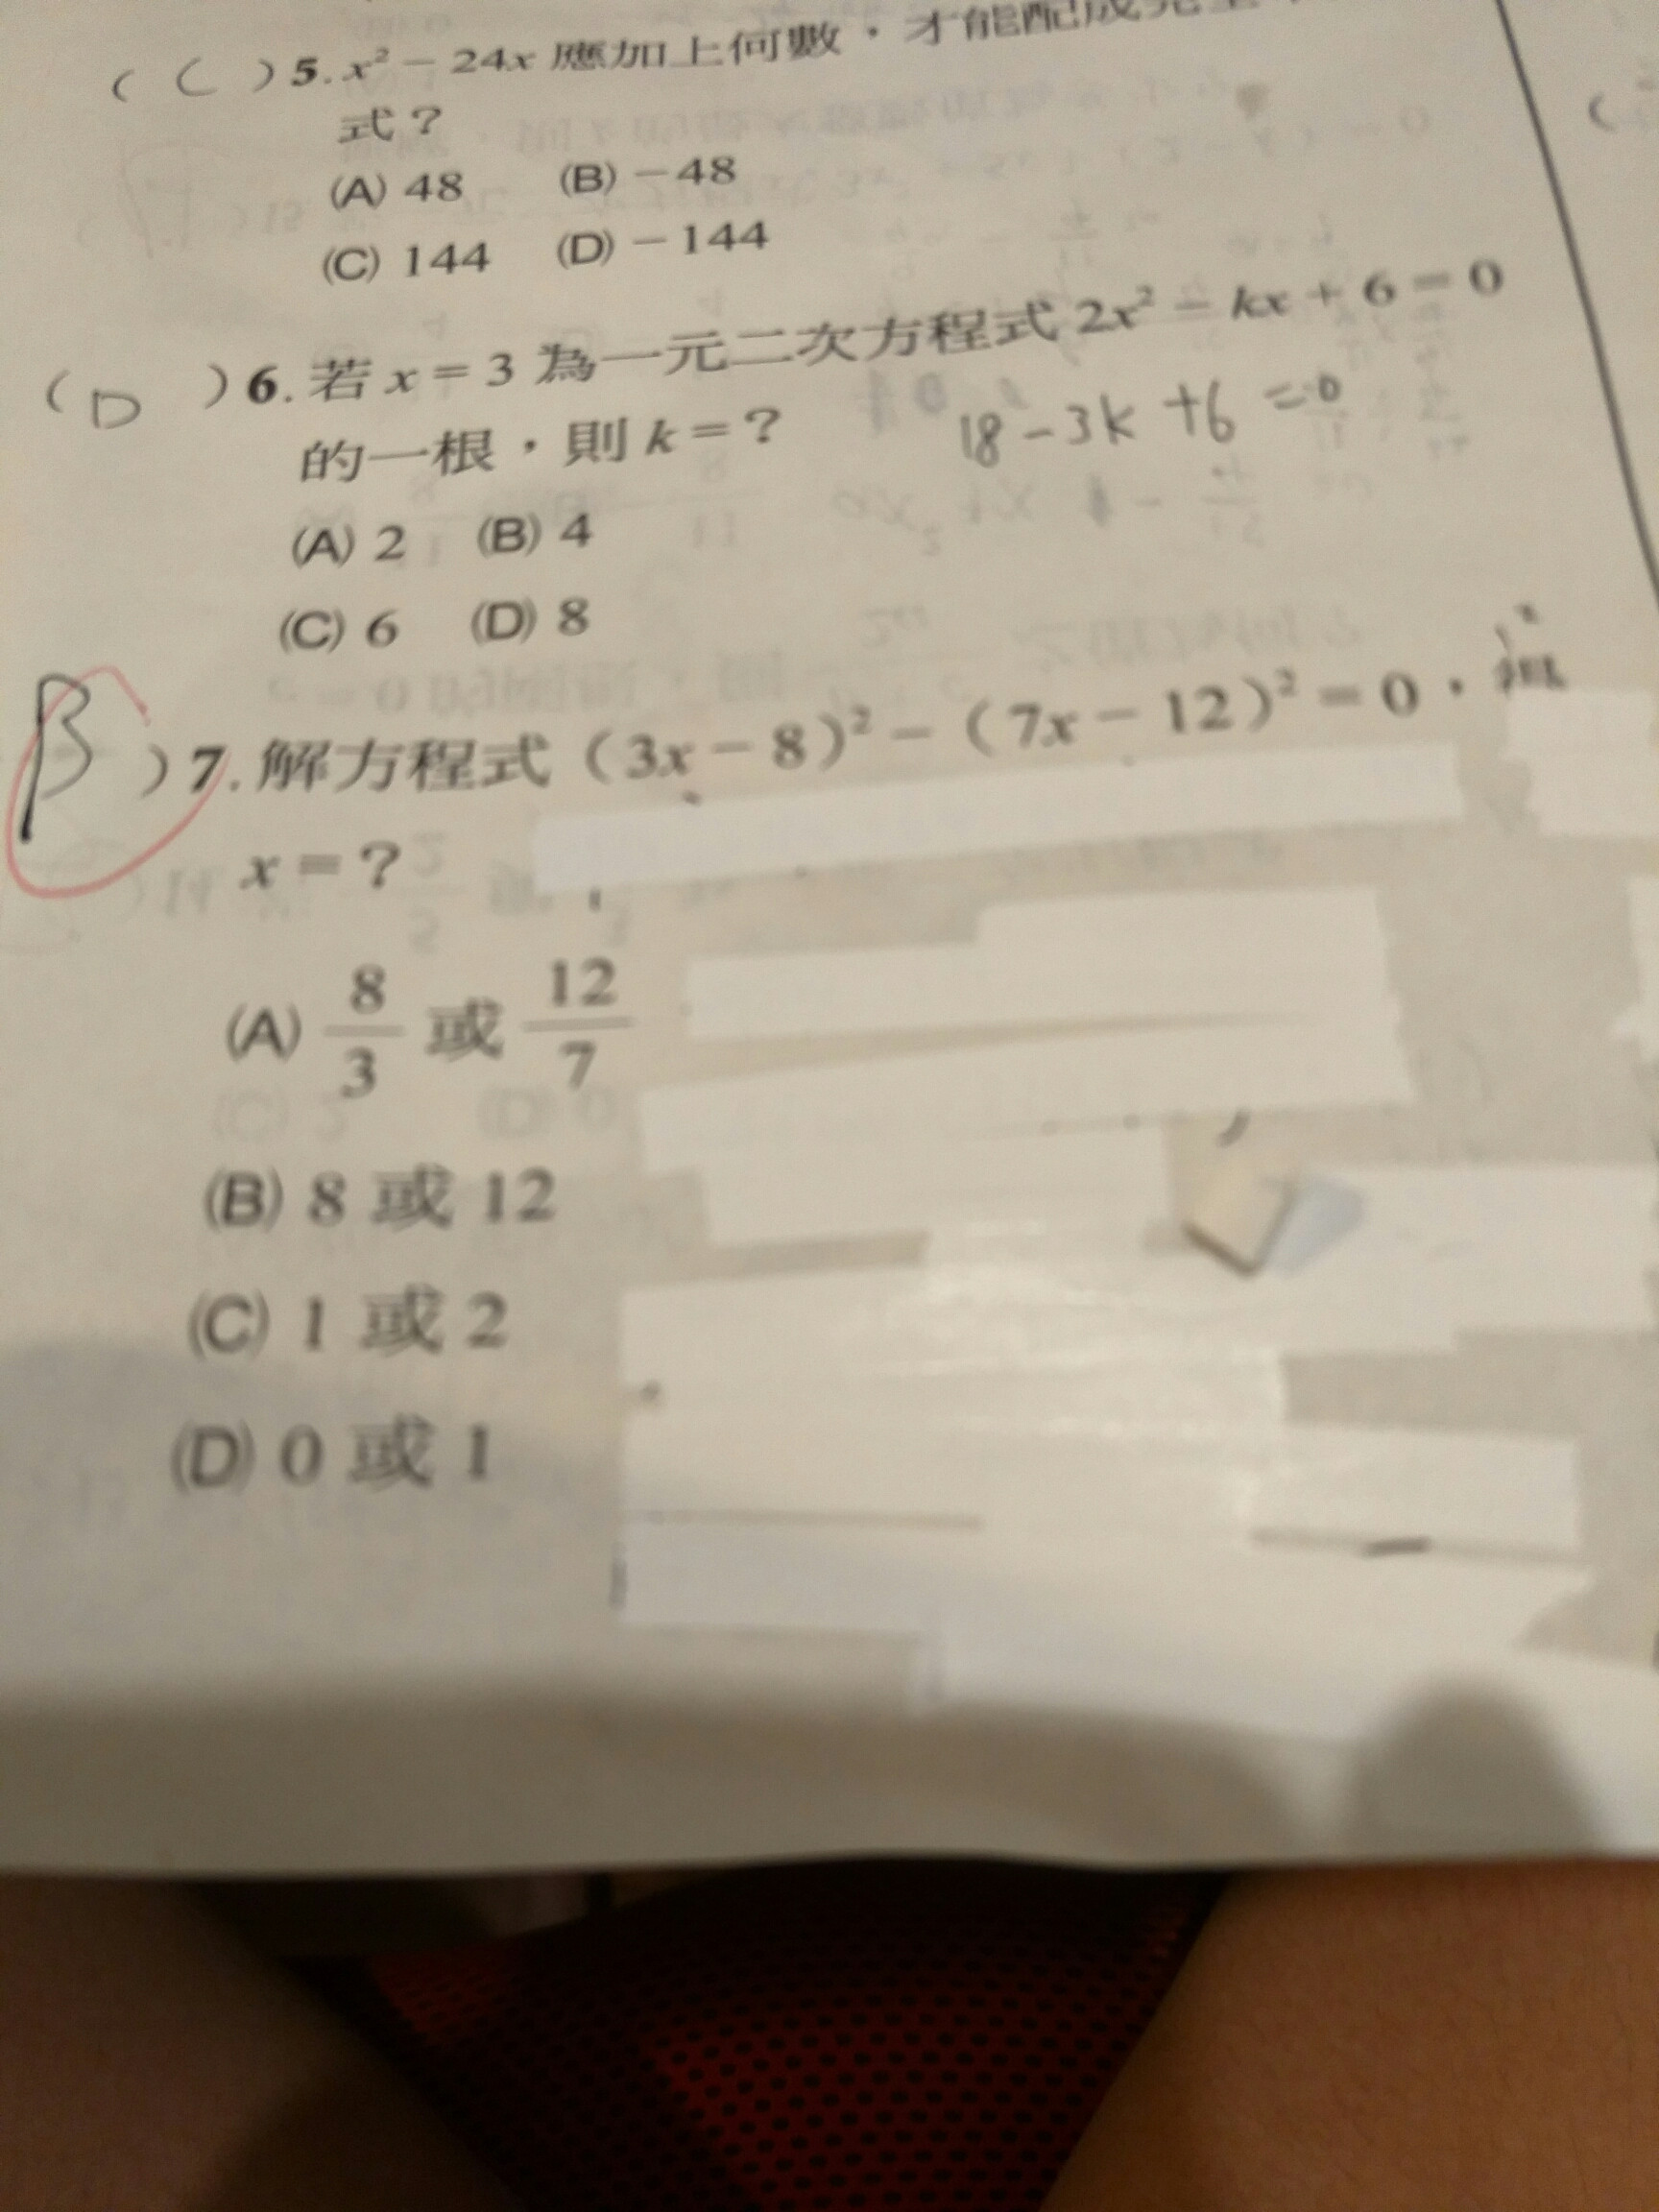 ( C ) 5. x² − 24x 應加上何數，才能配成完全
式？
(A) 48 (B) −48
(C) 144 (D) −144
( D ) 6. 若 x = 3 為一元二次方程式 2x² − kx + 6 = 0
的一根，則 k = ？
18 − 3k + 6 = 0
(A) 2 (B) 4
(C) 6 (D) 8
B ) 7. 解方程式（3x − 8）² −（7x − 12）² = 0，
x = ？
(A) 8/3 或 12/7
(B) 8 或 12
(C) 1 或 2
(D) 0 或 1